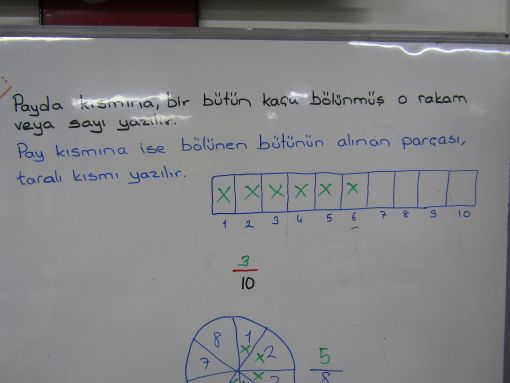 Payda kısmına, bir bütün kaça bölünmüş o rakam
veya sayı yazılır.
Pay kısmına ise bölünen bütünün alınan parçası,
taralı kısmı yazılır.
X X X X X X
1 2 3 4 5 6 7 8 9 10
3
10
8 1
7 2
5
8